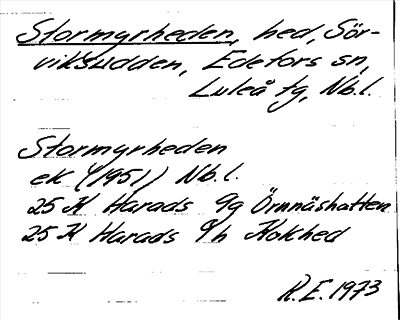 Stormyrheden, hed, Sör-
viksudden, Edefors sn,
Luleå tg, Nb.l.
Stormyrheden
ek (1951) Nb.l.
25 K Harads 9g Örnnäshatten
25 K Harads 9h Kokhed
R.E. 1973